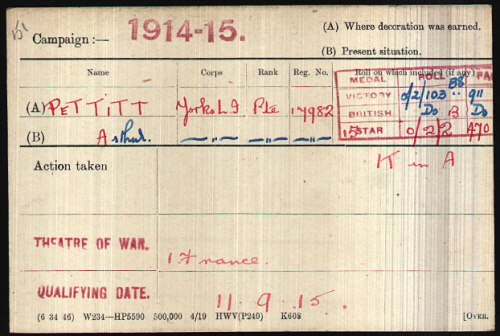 Campaign :— 1914-15.
(A) Where decoration was earned.
(B) Present situation.
Name Corps Rank Reg. No. Roll on which included (if any)
MEDAL ROLL PA
(A) PETTITT Yorks L I Pte 17982 VICTORY O/2/103 B8 911
(B) Arthur. —„— —„— BRITISH Do B Do
15 STAR O/2/2 470
Action taken K in A
THEATRE OF WAR. 1. France.
QUALIFYING DATE. 11.9.15.
(6 34 46) W234—HP5590 500,000 4/19 HWV(P240) K608 [OVER.